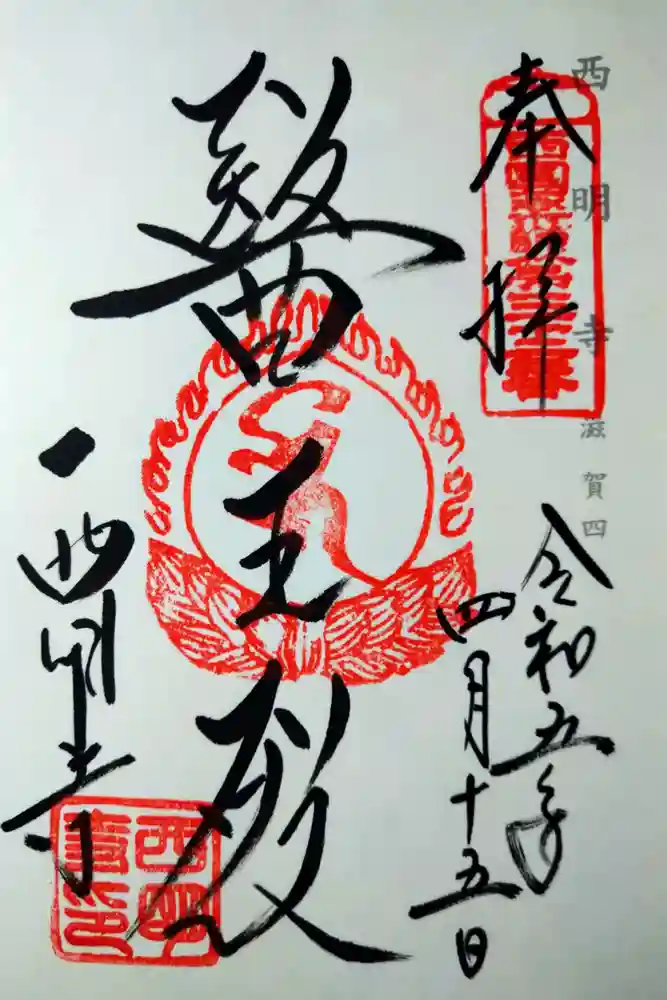 西明寺 滋賀四
奉拝
令和五年
四月十五日
醫王殿
西明寺
西明